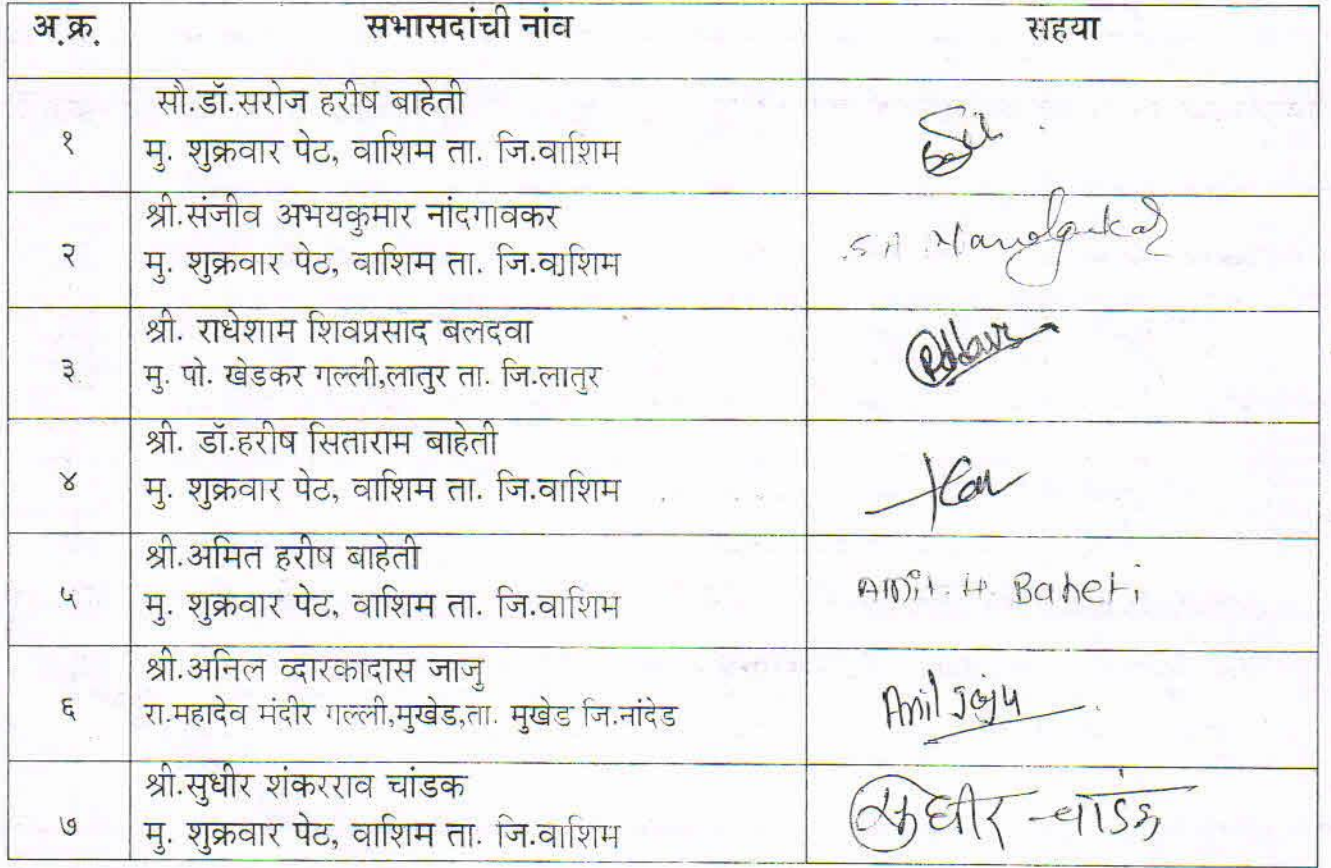 अ.क्र. सभासदांची नांव सहया
सौ.डॉ.सरोज हरीष बाहेती
१ मु. शुक्रवार पेठ, वाशिम ता. जि.वाशिम
श्री.संजीव अभयकुमार नांदगावकर
२ मु. शुक्रवार पेठ, वाशिम ता. जि.वाशिम S A Nandgaukar
श्री. राधेशाम शिवप्रसाद बलदवा
३ मु. पो. खेडकर गल्ली,लातुर ता. जि.लातुर
श्री. डॉ.हरीष सिताराम बाहेती
४ मु. शुक्रवार पेठ, वाशिम ता. जि.वाशिम
श्री.अमित हरीष बाहेती
५ मु. शुक्रवार पेठ, वाशिम ता. जि.वाशिम Amit. H. Baheti
श्री.अनिल व्दारकादास जाजु
६ रा.महादेव मंदीर गल्ली,मुखेड,ता. मुखेड जि.नांदेड Anil Jaju
श्री.सुधीर शंकरराव चांडक
७ मु. शुक्रवार पेठ, वाशिम ता. जि.वाशिम सुधीर चांडक